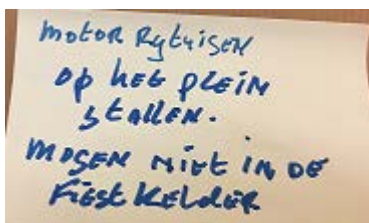 MOTOR RYtuigen
op het PLEIN
StALLEN.
MOgEN NIEt IN DE
FIEStKELDER